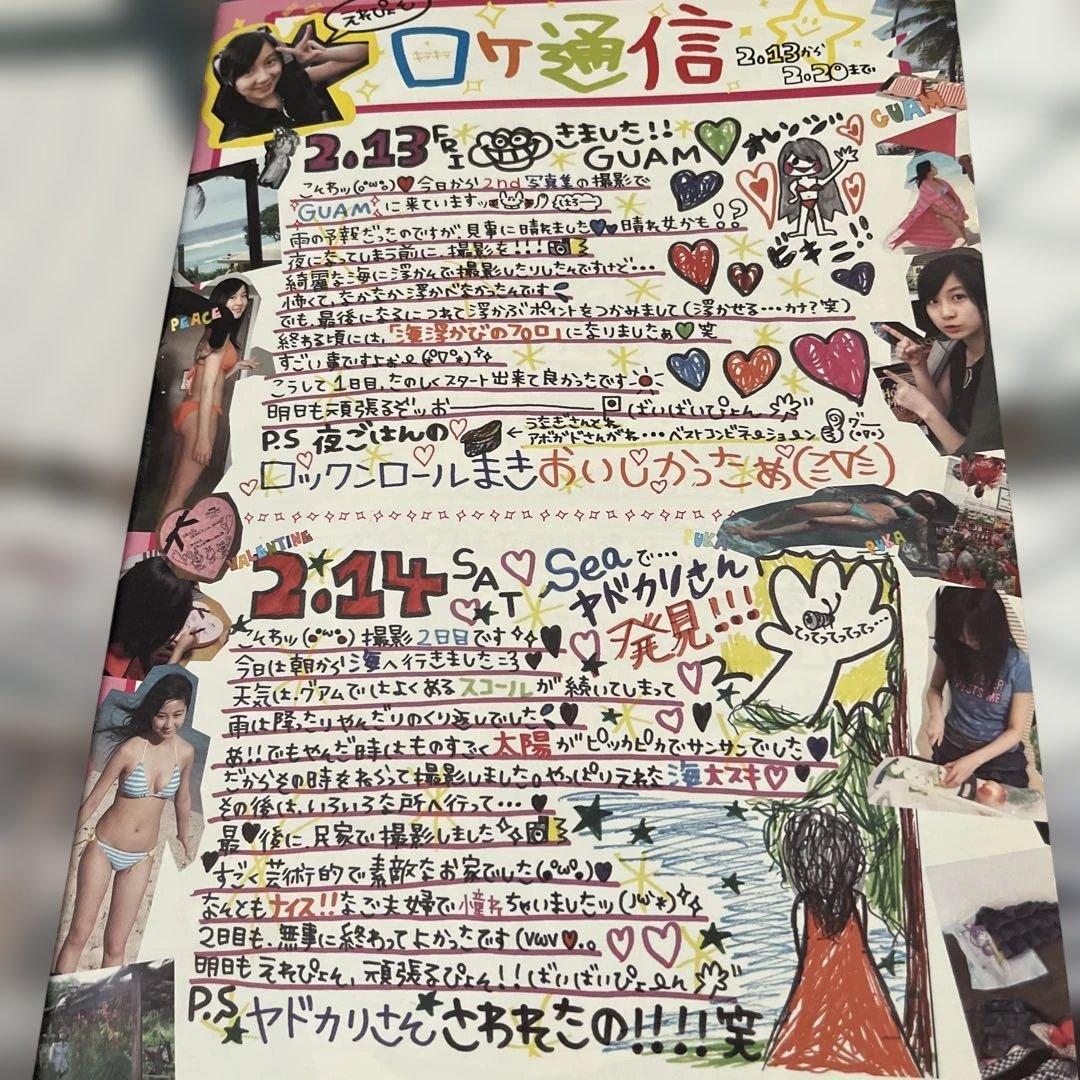 えれぴょん
ロケ通信
キラキラ
2.13から
2.20まで
GUAM
2.13 FRI きました!! GUAM
オレンジ
ビキニ!!
こんわッ(○'ω'○)♥今日から2nd写真集の撮影で
GUAMに来ていますッ
雨の予報だったのですが見事に晴れました♥晴れ女かも!?
夜になってしまう前に、撮影を!!!
綺麗な海に浮かんで撮影したりしたんですけど…
怖くて、なかなか浮かべなかったんです
でも、最後になるにつれて浮かぶポイントをつかみまして(浮かせる…カナ?笑)
終わる頃には、「海浮かびのプロ」になりましたぁ♥笑
すごい事ですよぉ
こうして1日目、たのしくスタート出来て良かったです
明日も頑張るぞッお――― ばいばいぴょん
P.S 夜ごはんの
←うなぎさんとね
アボガドさんがね…ベストコンビネーション
グー
ロックンロールまきおいしかったぁ(≡∇≡)
PEACE
VALENTINE
PUKA
PUKA
2.14 SAT
Seaで…
ヤドカリさん
発見!!!
てってってってって…
こんわッ(●'ω'●)撮影2日目です
今日は朝から海へ行きましたころ♥
天気は、グアムではよくあるスコールが続いてしまって
雨は降ったりやんだりのくり返しでした
あ!!でもやんだ時はものすごく太陽がピッカピカでサンサンでした♥
だからその時をねらって撮影しました。やっぱりえれな海大スキ♡♥
その後は、いろいろな所へ行って…♥
最♥後に、民家で撮影しました
すごく芸術的で素敵なお家でした(○'ω'○)♥
なんともナイス!!なご夫婦で憧れちゃいましたッ
2日目も、無事に終わってよかったです(vωv♥.。
明日もえれぴょん、頑張るぴょん!!ばいばいぴょーん
P.S
ヤドカリさんさわれたの!!!!笑